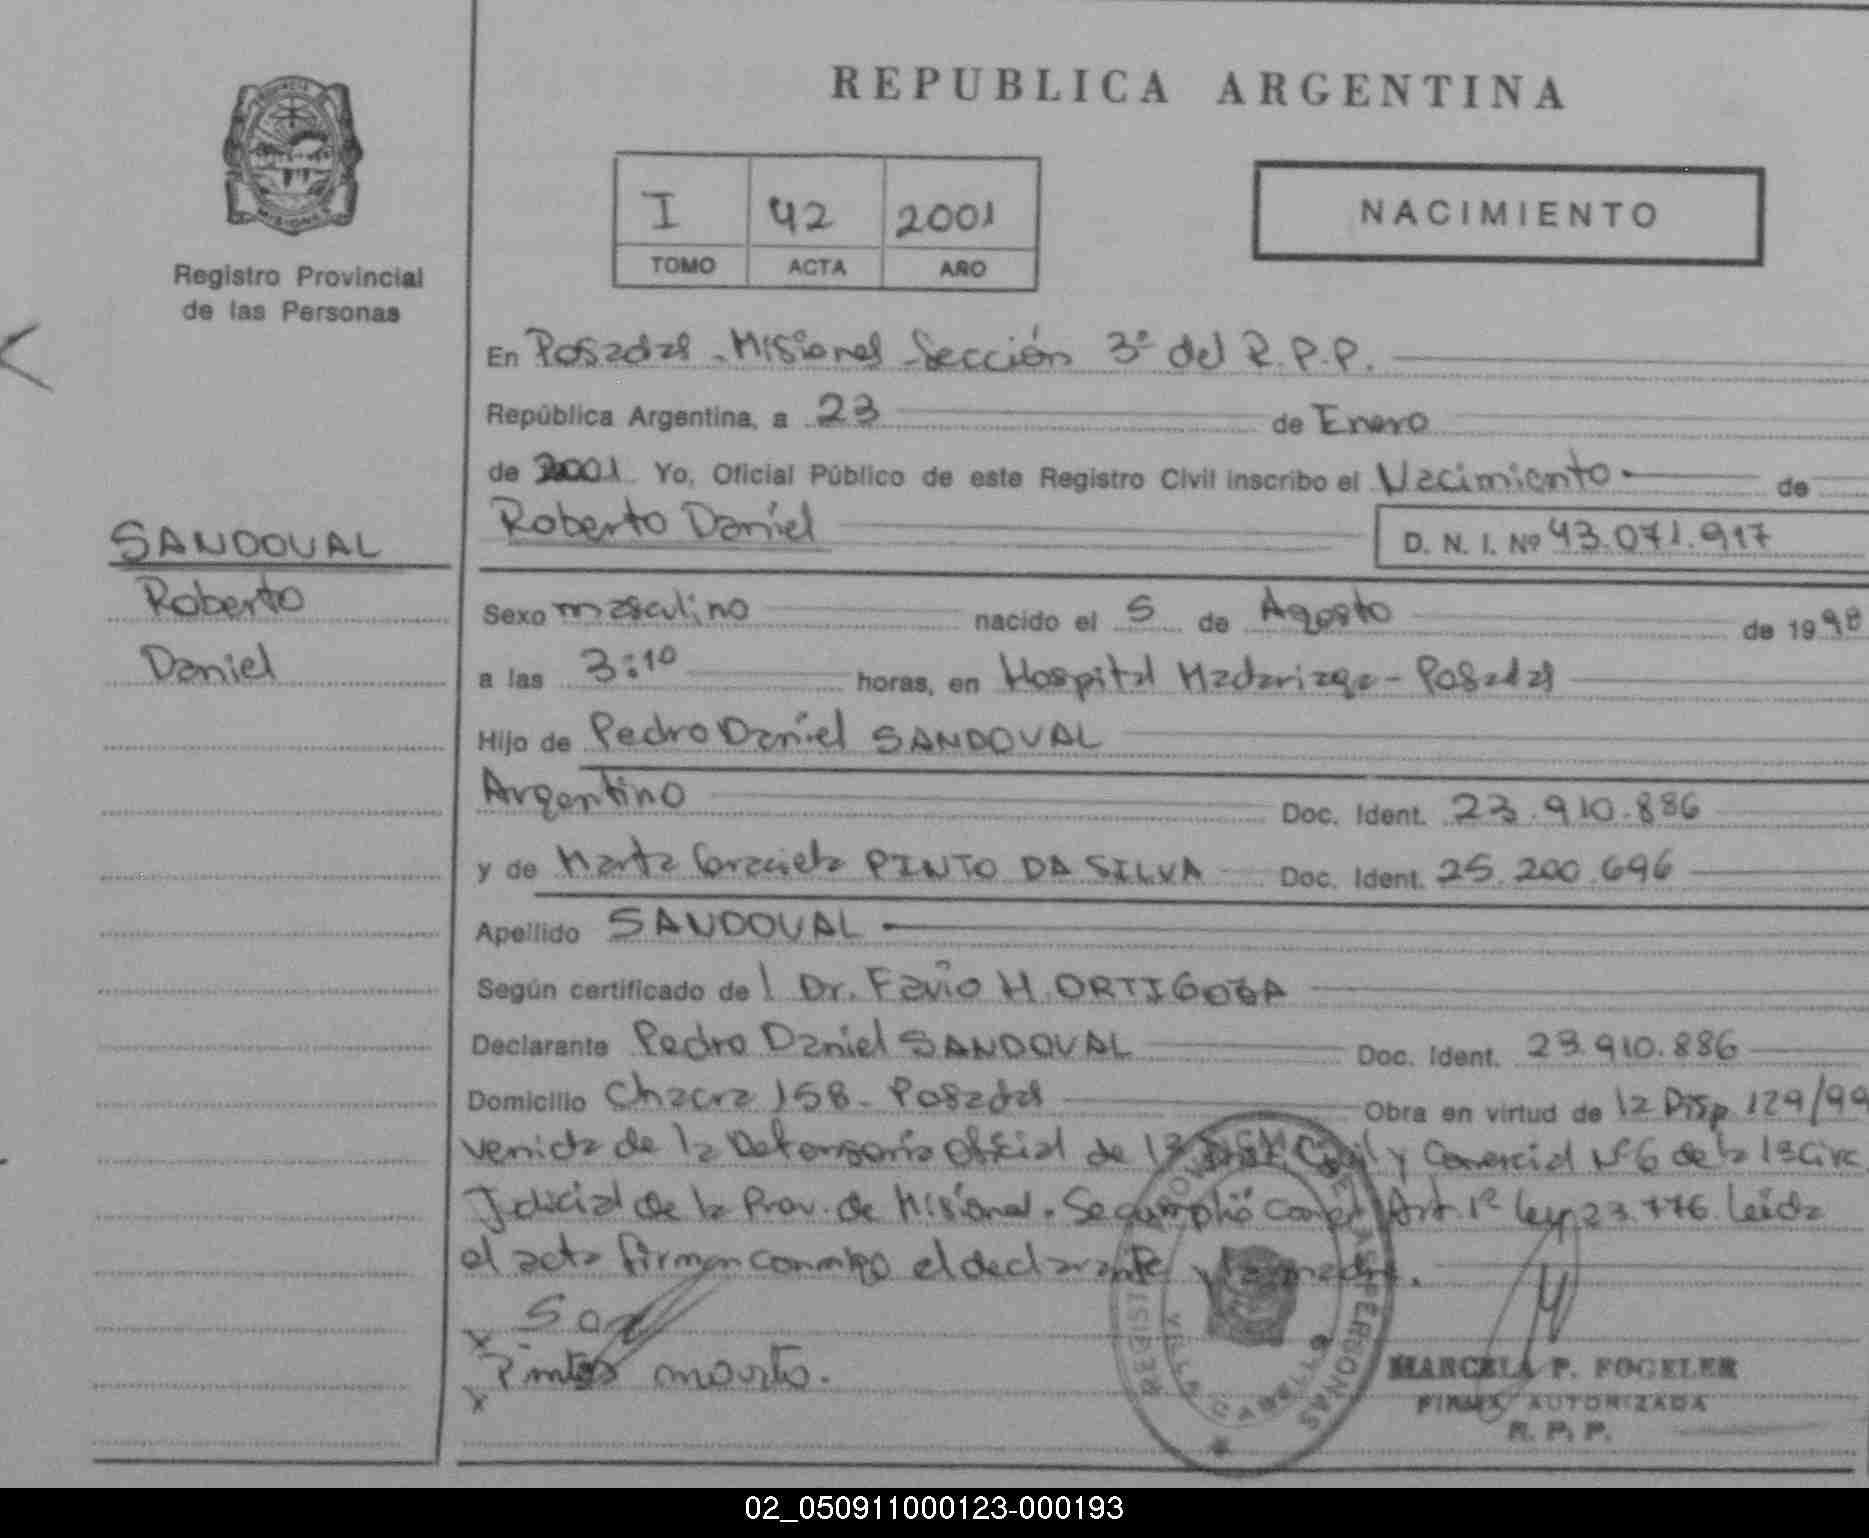 REPUBLICA ARGENTINA
I 42 2001
TOMO ACTA AÑO
NACIMIENTO
Registro Provincial
de las Personas
En Posadas - Misiones - Sección 3ª del R.P.P.
República Argentina, a 23 de Enero
de 2001 Yo, Oficial Público de este Registro Civil inscribo el Nacimiento de
Roberto Daniel D. N. I. Nº 43.071.917
SANDOVAL
Roberto
Daniel
Sexo masculino nacido el 5 de Agosto de 1998
a las 3:10 horas, en Hospital Madariaga - Posadas
Hijo de Pedro Daniel SANDOVAL
Argentino Doc. Ident. 23.910.886
y de Marta Graciela PINTO DA SILVA Doc. Ident. 25.200.696
Apellido SANDOVAL
Según certificado del Dr. Favio H. ORTIGOZA
Declarante Pedro Daniel SANDOVAL Doc. Ident. 23.910.886
Domicilio Chacra 158 - Posadas Obra en virtud de la Disp. 129/99
venida de la Defensoría Oficial de 1ª Civil y Comercial Nº 6 de la 1ª Circ
Judicial de la Prov. de Misiones. Se cumplió con el Art. 1º Ley 23.776. Leída
el acta firman conmigo el declarante y la madre.
x San
x Pintos marta.
REGISTRO PROVINCIAL DE LAS PERSONAS
VILLA CABELLO
MARCELA P. FOGELER
FIRMA AUTORIZADA
R. P. P.
02_050911000123-000193